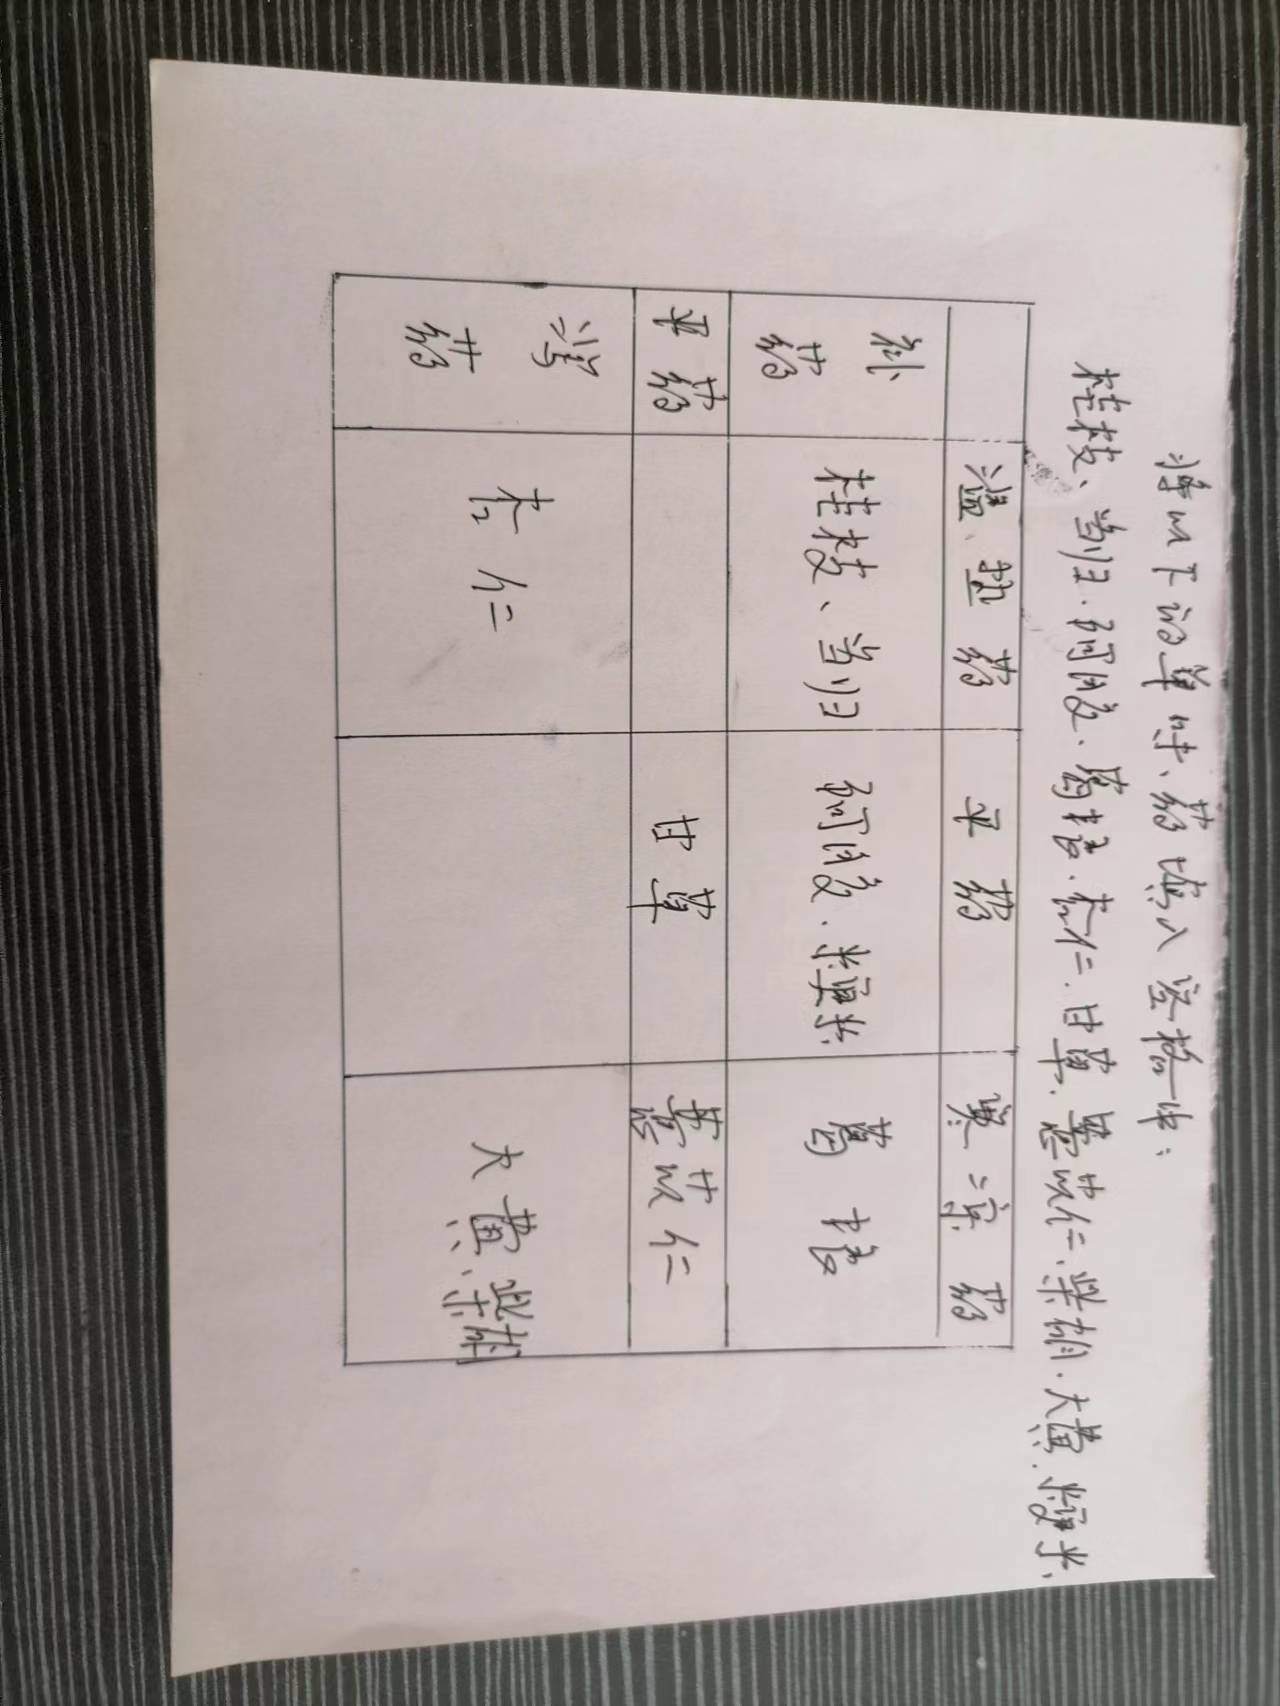 将以下的单味药填入空格中：
桂枝、当归、阿胶、葛根、杏仁、甘草、薏苡仁、柴胡、大黄、粳米、
温热药 平药 寒凉药
补药 桂枝、当归 阿胶、粳米、 葛根
平药 甘草 薏苡仁
泻药 杏仁 大黄、柴胡